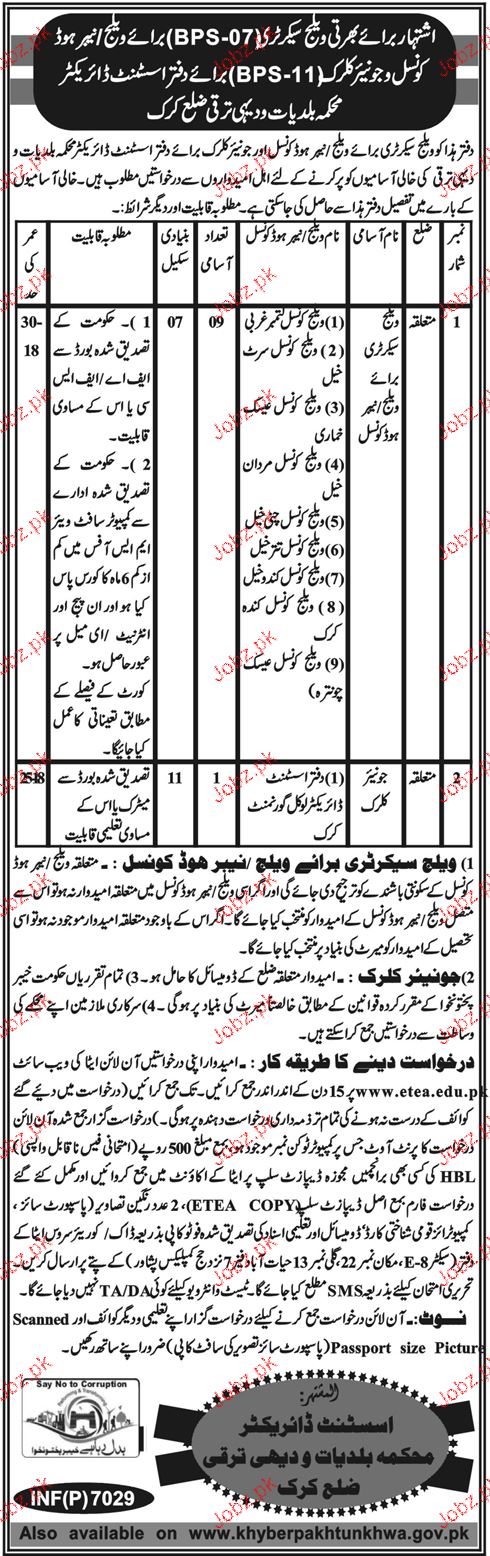 اشتہار برائے بھرتی ویلج سیکرٹری (BPS-07) برائے ویلج/نیبر ہوڈ
کونسل و جونیئر کلرک (BPS-11) برائے دفتر اسسٹنٹ ڈائریکٹر
محکمہ بلدیات و دیہی ترقی ضلع کرک
دفتر ہذا کو ویلج سیکرٹری برائے ویلج/نیبر ہوڈ کونسل اور جونیئر کلرک برائے دفتر اسسٹنٹ ڈائریکٹر محکمہ بلدیات و
دیہی ترقی کی خالی آسامیوں کو پر کرنے کے لئے اہل امیدواروں سے درخواستیں مطلوب ہیں۔ خالی آسامیوں
کے بارے میں تفصیل دفتر ہذا سے حاصل کی جاسکتی ہے۔ مطلوبہ قابلیت اور دیگر شرائط:۔
نمبر شمار | ضلع | نام آسامی | نام ویلج/نیبر ہوڈ کونسل | تعداد آسامی | بنیادی سکیل | مطلوبہ قابلیت | عمر کی حد
1 | متعلقہ | ویلج سیکرٹری برائے ویلج/نیبر ہوڈ کونسل | 09 | 07 | 30-18
(1) ویلج کونسل لتمبر غربی
(2) ویلج کونسل سرٹ
خیل
(3) ویلج کونسل عیسک
خماری
(4) ویلج کونسل مردان
خیل
(5) ویلج کونسل خیل
(6) ویلج کونسل خیل
(7) ویلج کونسل کندو خیل
(8) ویلج کونسل کندہ
کرک
(9) ویلج کونسل عیسک
چونترہ)
1)۔ حکومت کے
تصدیق شدہ بورڈ سے
ایف اے/ ایف ایس
سی یا اس کے مساوی
قابلیت۔
2)۔ حکومت کے
تصدیق شدہ ادارے
سے کمپیوٹر سافٹ ویئر
ایم ایس آفس میں کم
از کم 6 ماہ کا کورس پاس
کیا ہو اور ان پیج اور
انٹرنیٹ/ ای میل پر
عبور حاصل ہو۔
کورٹ کے فیصلے کے
مطابق تعیناتی کا عمل
کیا جائیگا۔
2 | متعلقہ | جونیئر کلرک | (1) دفتر اسسٹنٹ ڈائریکٹر لوکل گورنمنٹ کرک | 1 | 11 | تصدیق شدہ بورڈ سے میٹرک یا اس کے مساوی تعلیمی قابلیت
1) ویلج سیکرٹری برائے ویلج /نیبر ہوڈ کونسل :۔ متعلقہ ویلج/نیبر ہوڈ
کونسل کے سکونتی باشندے کو ترجیح دی جائے گی اور اگر اسی ویلج/نیبر ہوڈ کونسل میں متعلقہ امیدوار نہ ہو تو اس سے
متصل ویلج/نیبر ہوڈ کونسل کے امیدوار کو منتخب کیا جائے گا۔ اگر اس کے باوجود متعلقہ امیدوار موجود نہ ہو تو اسی
تحصیل کے امیدوار کو میرٹ کی بنیاد پر منتخب کیا جائے گا۔
2) جونیئر کلرک :۔ امیدوار متعلقہ ضلع کے ڈومیسائل کا حامل ہو۔ 3) تمام تقرریاں حکومت خیبر
پختونخوا کے مقرر کردہ قوانین کے مطابق خالصتاً میرٹ کی بنیاد پر ہوگی۔ 4) سرکاری ملازمین اپنے محکمے کی
وساطت سے درخواستیں جمع کراسکتے ہیں۔
درخواست دینے کا طریقہ کار :۔ امیدوار اپنی درخواستیں آن لائن ایٹا کی ویب سائٹ
www.etea.edu.pk پر 15 دن کے اندر اندر جمع کرائیں۔ تک جمع کرائیں (درخواست میں دیئے گئے
کوائف کے درست نہ ہونے کی تمام تر ذمہ داری درخواست دہندہ پر ہوگی)۔ درخواست گزار جمع شدہ آن لائن
درخواست کا پرنٹ آوٹ جس پر کمپیوٹر ٹوکن نمبر موجود ہو، بمع مبلغ 500 روپے (امتحانی فیس ناقابل واپسی)
HBL کی کسی بھی برانچ میں مجوزہ ڈیپازٹ سلپ پر ایٹا کے اکاؤنٹ میں جمع کروائیں اور مکمل کئے گئے
درخواست فارم بمع اصل ڈیپازٹ سلپ (ETEA COPY)، 2 عدد رنگین تصاویر (پاسپورٹ سائز)،
کمپیوٹرائز قومی شناختی کارڈ، ڈومیسائل اور تعلیمی اسناد کی تصدیق شدہ فوٹو کاپی بذریعہ ڈاک/ کوریئر سروس ایٹا کے
دفتر (سیکٹر E-8، مکان نمبر 22، گلی نمبر 13 حیات آباد فیز 7 نزد حج کمپلیکس پشاور) کے پتے پر ارسال کریں۔
تحریری امتحان کیلئے بذریعہ SMS مطلع کیا جائے گا۔ ٹیسٹ و انٹرویو کیلئے کوئی TA/DA نہیں دیا جائے گا۔
نوٹ:۔ آن لائن درخواست جمع کرنے کیلئے درخواست گزار اپنے تعلیمی و دیگر کوائف اور Scanned
Passport size Picture (پاسپورٹ سائز تصویر کی سافٹ کاپی) ضرور اپنے ساتھ رکھیں۔
Say No to Corruption
بدل رہا ہے خیبر پختونخوا
INF(P)7029
المشتہر:
اسسٹنٹ ڈائریکٹر
محکمہ بلدیات و دیہی ترقی
ضلع کرک
Also available on www.khyberpakhtunkhwa.gov.pk
Jobz.pk